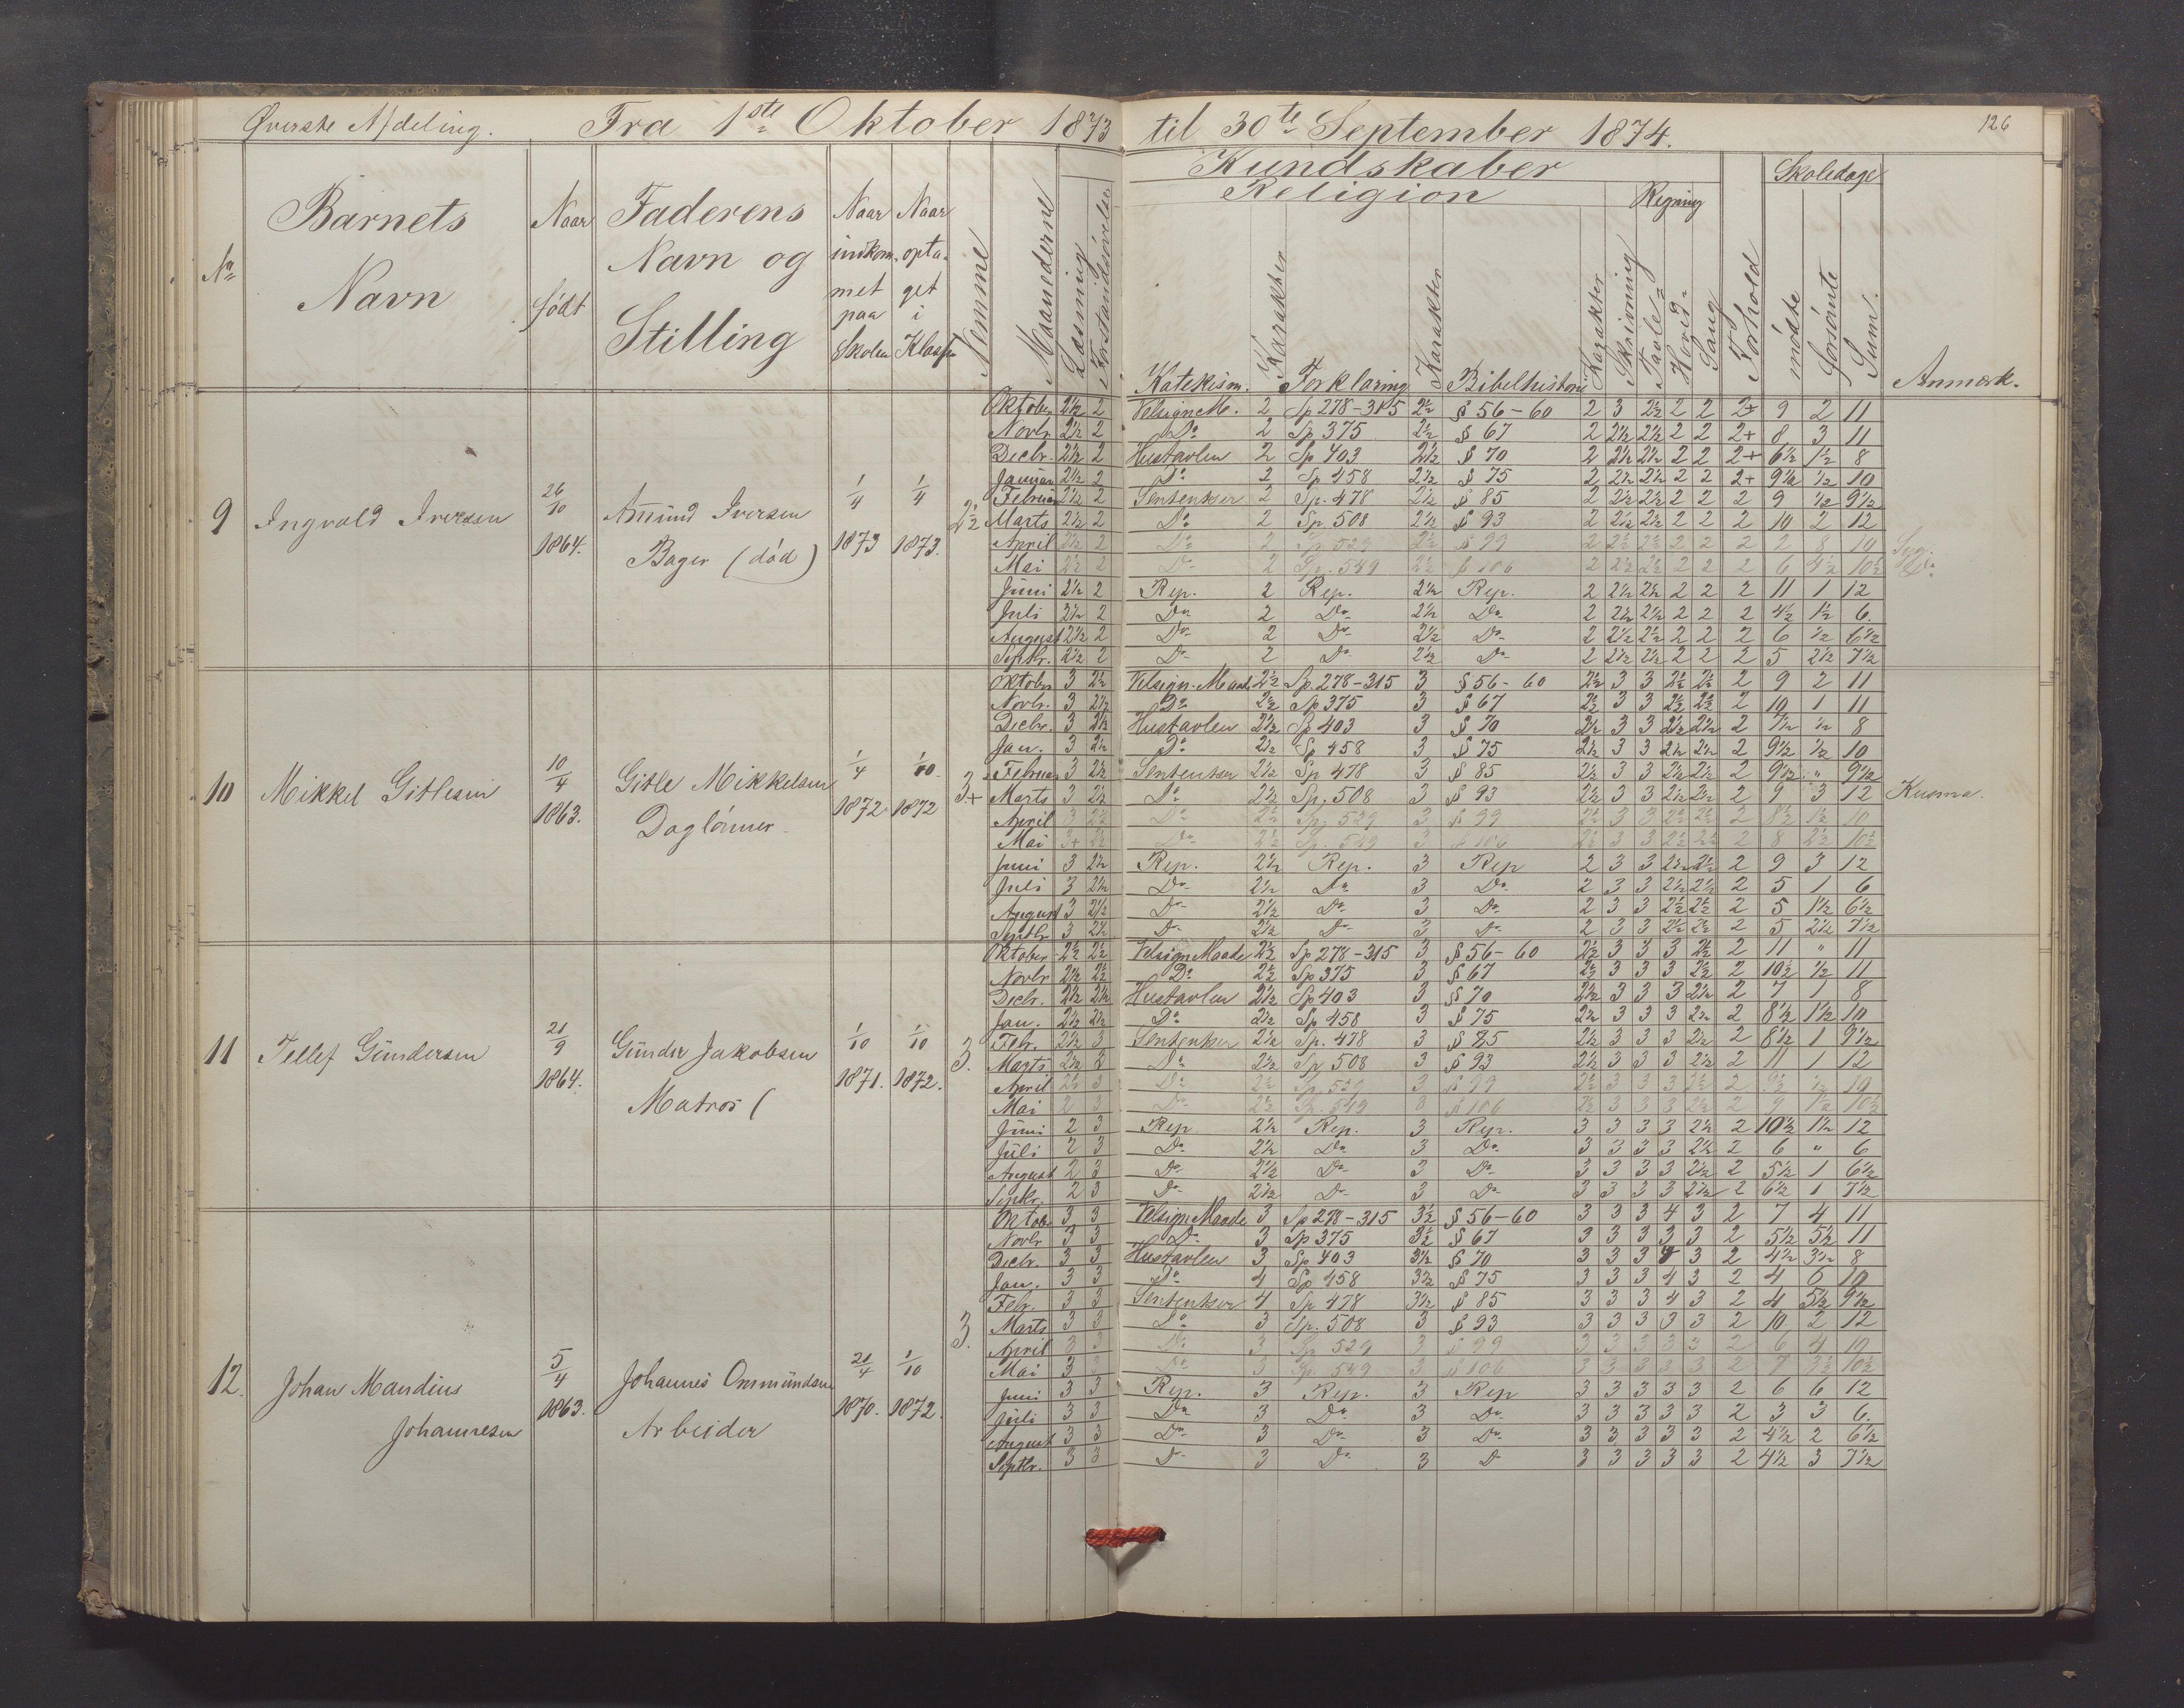 Øverste Afdeling. Fra 1ste Oktober 1873 til 30te September 1874. 126
Kundskaber
Religion Regning Skoledage
No Barnets Navn Naar født Faderens Navn og Stilling Naar indkommet paa Skolen Naar optaget i Klassen Nemme Maanederne Læsning Forstandsøvelser Katekism. Karakter Forklaring Karakter Bibelhistorie Karakter Skrivning Tavle- Hovid- Sang Forhold mødte forsømte Sum. Anmærk.
9 Ingvald Iversen 26/10 1864. Amund Iversen Bager (død) 1/4 1873 1/4 1873. 2½
Oktober 2½ 2 Velsign M. 2 Sp 278-315 2½ § 56-60 2 3 2½ 2 2 2+ 9 2 11
Novbr 2½ 2 Do 2 Sp 375 2½ § 67 2 2½ 2½ 2 2 2+ 8 3 11
Decbr. 2½ 2 Hustavlen 2 Sp 403 2½ § 70 2 2½ 2½ 2 2 2+ 6½ 1½ 8
Januar 2½ 2 Do 2 Sp 458 2½ § 75 2 2½ 2½ 2 2 2+ 9½ ½ 10
Februar 2½ 2 Sentenser 2 Sp. 478 2½ § 85 2 2½ 2½ 2 2 2 9 ½ 9½
Marts 2½ 2 Do 2 Sp. 508 2½ § 93 2 2½ 2½ 2 2 2 10 2 12
April 2½ 2 Do 2 Sp 529 2½ § 99 2 2½ 2½ 2 2 2 2 8 10 Syg.
Mai 2½ 2 Do 2 Sp. 549 2½ § 106 2 2½ 2½ 2 2 2 6 4½ 10½ Do
Juni 2½ 2 Rep. 2 Rep. 2½ Rep. 2 2½ 2½ 2 2 2 11 1 12
Juli 2½ 2 Do 2 Do 2½ Do 2 2½ 2½ 2 2 2 4½ 1½ 6.
August 2½ 2 Do 2 Do 2½ Do 2 2½ 2½ 2 2 2 6 ½ 6½
Septbr. 2½ 2 Do 2 Do 2½ Do 2 2½ 2½ 2 2 2 5 2½ 7½
10 Mikkel Gitlesen 10/4 1863. Gitle Mikkelsen Daglønner 1/4 1872 1/10 1872 3+
Oktober 3 2½ Velsign. Maade 2½ Sp. 278-315 3 § 56-60 2½ 3 3 2½ 2½ 2 9 2 11
Novbr. 3 2½ Do 2½ Sp 375 3 § 67 2½ 3 3 2½ 2½ 2 10 1 11
Decbr. 3 2½ Hustavlen 2½ Sp 403 3 § 70 2½ 3 3 2½ 2½ 2 7½ ½ 8
Jan. 3 2½ Do 2½ Sp 458 3 § 75 2½ 3 3 2½ 2½ 2 9½ ½ 10
Februar 3 2½ Sentenser 2½ Sp 478 3 § 85 2½ 3 3 2½ 2½ 2 9½ " 9½
Marts 3 2½ Do 2½ Sp. 508 3 § 93 2½ 3 3 2½ 2½ 2 9 3 12
April 3 2½ Do 2½ Sp. 529 3 § 99 2½ 3 3 2½ 2½ 2 8½ 1½ 10
Mai 3+ 2½ Do 2½ Sp. 549 3 § 106 2½ 3 3 2½ 2½ 2 8 2½ 10½
Juni 3 2½ Rep. 2½ Rep. 3 Rep 2 3 3 2½ 2½ 2 9 3 12
Juli 3 2½ Do 2½ Do 3 Do 2 3 3 2½ 2½ 2 5 1 6
August 3 2½ Do 2½ Do 3 Do 2 3 3 2½ 2½ 2 5 1½ 6½
Septbr 3 2½ Do 2½ Do 3 Do 2 3 3 2½ 2½ 2 5 2½ 7½
11 Tellef Gundersen 21/9 1864. Gunder Jakobsen Matros ( 1/10 1871. 1/10 1872. 3.
Oktober 2½ 2½ Velsign Maade 2½ Sp 278-315 3 § 56-60 2½ 3 3 3 2½ 2 11 " 11
Novbr 2½ 2½ Do 2½ Sp 375 3 § 67 2½ 3 3 3 2½ 2 10½ ½ 11
Decbr. 2½ 2½ Hustavlen 2½ Sp 403 3 § 70 2½ 3 3 3 2½ 2 7 1 8
Jan. 2½ 2½ Do 2½ Sp 458 3 § 75 2½ 3 3 3 2½ 2 8½ 1½ 10
Febr. 2½ 3 Sentenser 2½ Sp. 478 3 § 85 2½ 3 3 3 2½ 2 8½ 1 9½
Marts 2½ 3 Do 2½ Sp 508 3 § 93 2½ 3 3 3 2½ 2 11 1 12
April 2½ 3 Do 2½ Sp. 529 3 § 99 2½ 3 3 3 2½ 2 9½ ½ 10
Mai 2 3 Do 2½ Sp. 549 3 § 106 2½ 3 3 3 2½ 2 9 1½ 10½
Juni 2 3 Rep 2½ Rep. 3 Rep. 3 3 3 3 2½ 2 10½ 1½ 12
Juli 2 3 Do 2½ Do 3 Do 3 3 3 3 2½ 2 6 " 6
August 2 3 Do 2½ Do 3 Do 3 3 3 3 2½ 2 5½ 1 6½
Septbr. 2 3 Do 2½ Do 3 Do 3 3 3 3 2½ 2 6½ 1 7½
12. Johan Mandius Johannesen 5/4 1863. Johannes Ommundsen Arbeider 21/4 1870. 1/10 1872. 3.
Oktobr 3 3 Velsign Maade 3 Sp 278-315 3½ § 56-60 3 3 3 4 3 2 7 4 11
Novbr 3 3 Do 3 Sp 375 3½ § 67 3 3 3 3 3 2 5½ 5½ 11
Decbr. 3 3 Hustavlen 3 Sp 403 3½ § 70 3 3 3 4 3 2 4½ 3½ 8
Jan. 3 3 Do 4 Sp 458 3½ § 75 3 3 3 4 3 2 4 6 10
Febr. 3 3 Sentenser 4 Sp 478 3½ § 85 3 3 3 4 3 2 4 5½ 9½
Marts 3 3 Do 3 Sp. 508 3 § 93 3 3 3 3 3 2 10 2 12
April 3 3 Do 3 Sp 529 3 § 99 3 3 3 3 3 2 6 4 10
Mai 3 3 Do 3 Sp. 549 3 § 106 3 3 3 3 3 2 7 3½ 10½
Juni 3 3 Rep. 3 Rep. 3 Rep 3 3 3 3 3 2 6 6 12
Juli 3 3 Do 3 Do 3 Do 3 3 3 3 3 2 3 3 6.
August 3 3 Do 3 Do 3 Do 3 3 3 3 3 2 4½ 2 6½
Septbr. 3 3 Do 3 Do 3 Do 3 3 3 3 3 2 4½ 3 7½